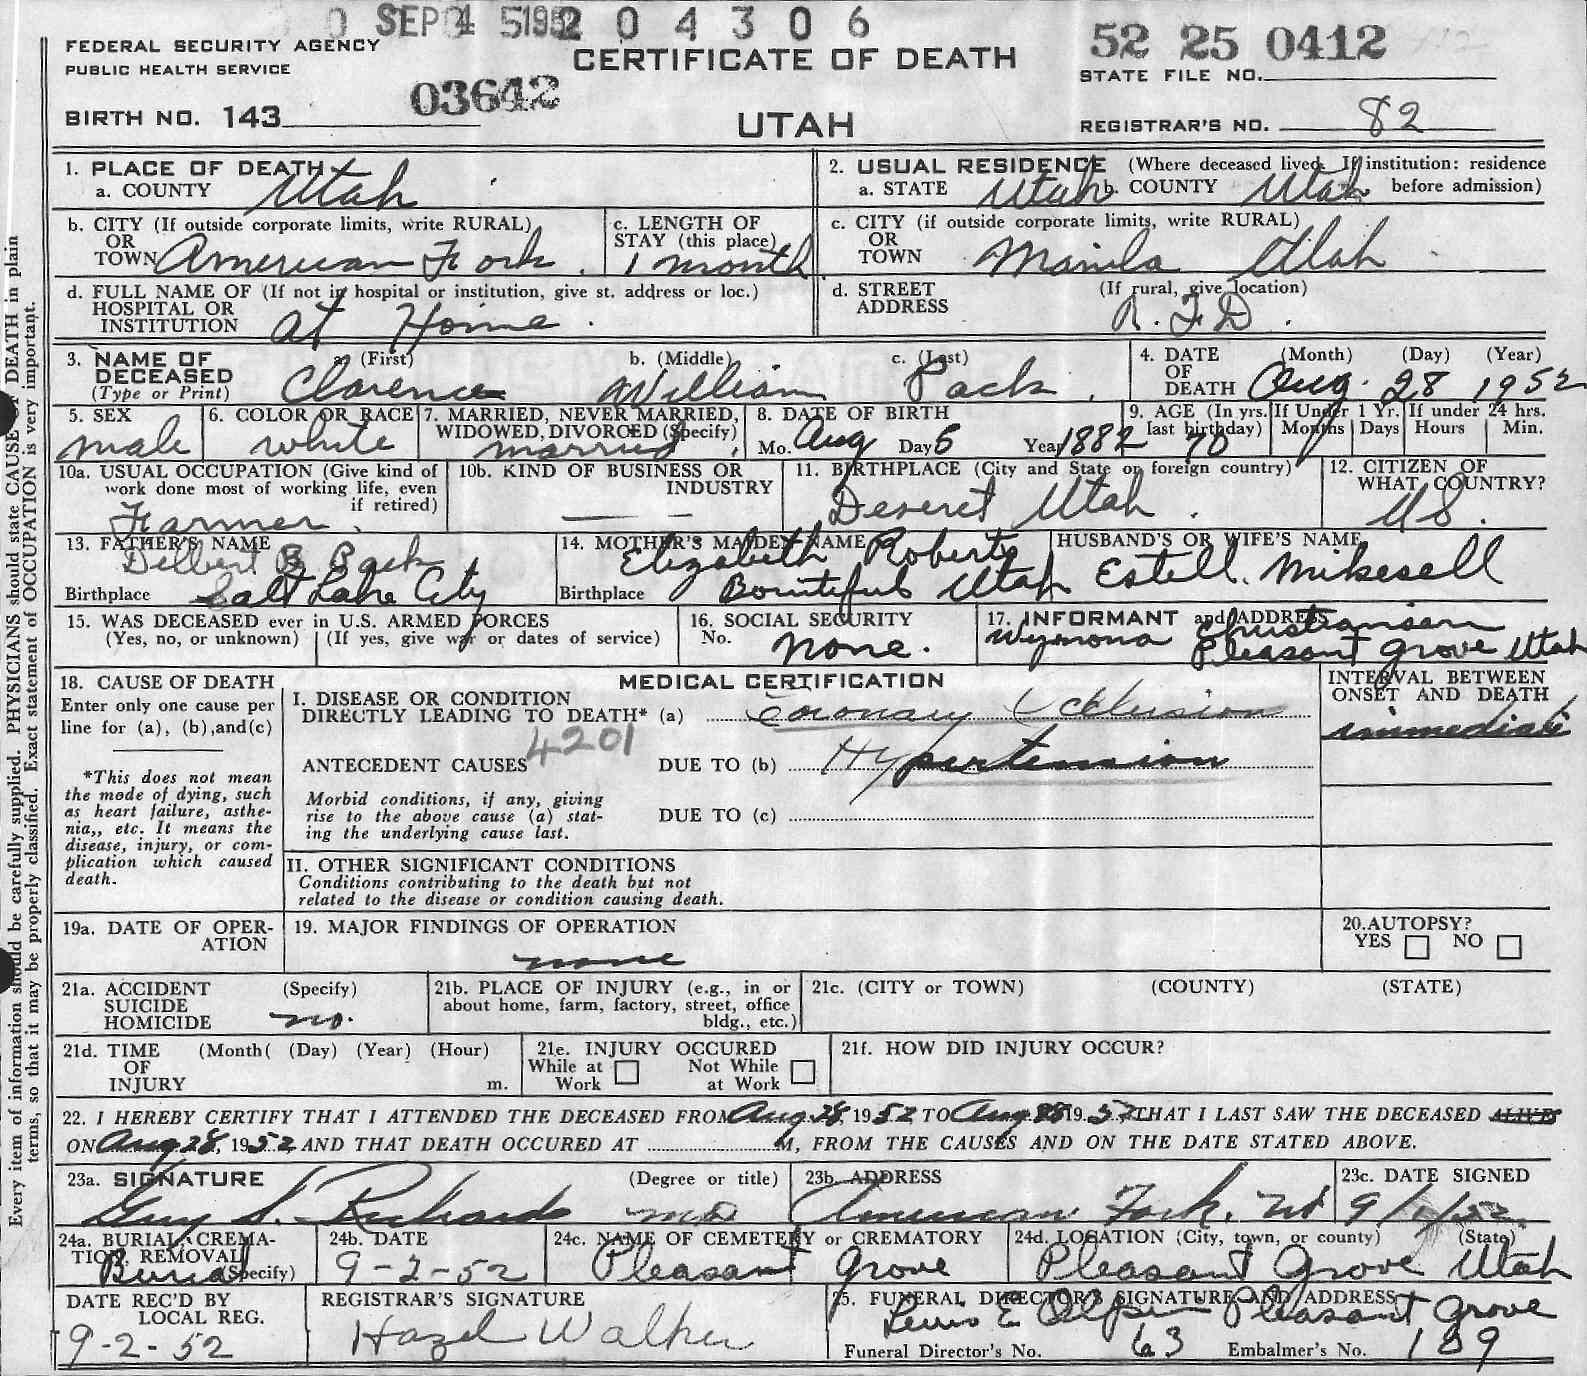 SEP 4 1952 0 4 3 0 6
FEDERAL SECURITY AGENCY
PUBLIC HEALTH SERVICE
CERTIFICATE OF DEATH
52 25 0412
STATE FILE NO.
BIRTH NO. 143 03642
UTAH
REGISTRAR'S NO. 82
1. PLACE OF DEATH
a. COUNTY Utah
2. USUAL RESIDENCE (Where deceased lived. If institution: residence before admission)
a. STATE Utah b. COUNTY Utah
b. CITY (If outside corporate limits, write RURAL) OR TOWN American Fork
c. LENGTH OF STAY (this place) 1 month
c. CITY (if outside corporate limits, write RURAL) OR TOWN Manila Utah
d. FULL NAME OF (If not in hospital or institution, give st. address or loc.)
HOSPITAL OR INSTITUTION at Home.
d. STREET ADDRESS (If rural, give location) R.F.D.
3. NAME OF DECEASED (Type or Print)
a. (First) Clarence b. (Middle) William c. (Last) Pack
4. DATE OF DEATH (Month) (Day) (Year) Aug. 28 1952
5. SEX male
6. COLOR OR RACE white
7. MARRIED, NEVER MARRIED, WIDOWED, DIVORCED (Specify) married
8. DATE OF BIRTH Mo. Aug Day 6 Year 1882
9. AGE (In yrs. last birthday) 70
If Under 1 Yr. Months Days
If under 24 hrs. Hours Min.
10a. USUAL OCCUPATION (Give kind of work done most of working life, even if retired) Farmer
10b. KIND OF BUSINESS OR INDUSTRY
11. BIRTHPLACE (City and State or foreign country) Deseret Utah.
12. CITIZEN OF WHAT COUNTRY? US.
13. FATHER'S NAME Delbert B. Pack
Birthplace Salt Lake City
14. MOTHER'S MAIDEN NAME Elizabeth Roberts
Birthplace Bountiful Utah
HUSBAND'S OR WIFE'S NAME Estell. Mikesell
15. WAS DECEASED ever in U.S. ARMED FORCES
(Yes, no, or unknown) (If yes, give war or dates of service)
16. SOCIAL SECURITY No. none.
17. INFORMANT and ADDRESS
Wymona Christiansen
Pleasant Grove Utah
18. CAUSE OF DEATH
Enter only one cause per line for (a), (b),and(c)
*This does not mean the mode of dying, such as heart failure, asthenia,, etc. It means the disease, injury, or complication which caused death.
MEDICAL CERTIFICATION
INTERVAL BETWEEN ONSET AND DEATH
immediate
I. DISEASE OR CONDITION
DIRECTLY LEADING TO DEATH* (a) Coronary Occlusion
4201
ANTECEDENT CAUSES DUE TO (b) Hypertension
Morbid conditions, if any, giving rise to the above cause (a) stating the underlying cause last.
DUE TO (c)
II. OTHER SIGNIFICANT CONDITIONS
Conditions contributing to the death but not related to the disease or condition causing death.
19a. DATE OF OPERATION
19. MAJOR FINDINGS OF OPERATION
none
20.AUTOPSY?
YES NO
21a. ACCIDENT SUICIDE HOMICIDE (Specify) no.
21b. PLACE OF INJURY (e.g., in or about home, farm, factory, street, office bldg., etc.)
21c. (CITY or TOWN) (COUNTY) (STATE)
21d. TIME OF INJURY (Month( (Day) (Year) (Hour) m.
21e. INJURY OCCURED
While at Work Not While at Work
21f. HOW DID INJURY OCCUR?
22. I HEREBY CERTIFY THAT I ATTENDED THE DECEASED FROM Aug 28 1952 TO Aug 28 19 52, THAT I LAST SAW THE DECEASED ALIVE
ON Aug 28, 1952, AND THAT DEATH OCCURED AT M, FROM THE CAUSES AND ON THE DATE STATED ABOVE.
23a. SIGNATURE (Degree or title)
Guy S. Richards MD
23b. ADDRESS
American Fork, Ut
23c. DATE SIGNED
9/1/52
24a. BURIAL, CREMATION, REMOVAL (Specify) Burial
24b. DATE 9-2-52
24c. NAME OF CEMETERY or CREMATORY Pleasant Grove
24d. LOCATION (City, town, or county) (State) Pleasant Grove Utah
DATE REC'D BY LOCAL REG. 9-2-52
REGISTRAR'S SIGNATURE Hazel Walker
25. FUNERAL DIRECTOR'S SIGNATURE AND ADDRESS
Lewis E Olpin Pleasant Grove
Funeral Director's No. 63 Embalmer's No. 189
Every item of information should be carefully supplied. PHYSICIANS should state CAUSE OF DEATH in plain
terms, so that it may be properly classified. Exact statement of OCCUPATION is very important.